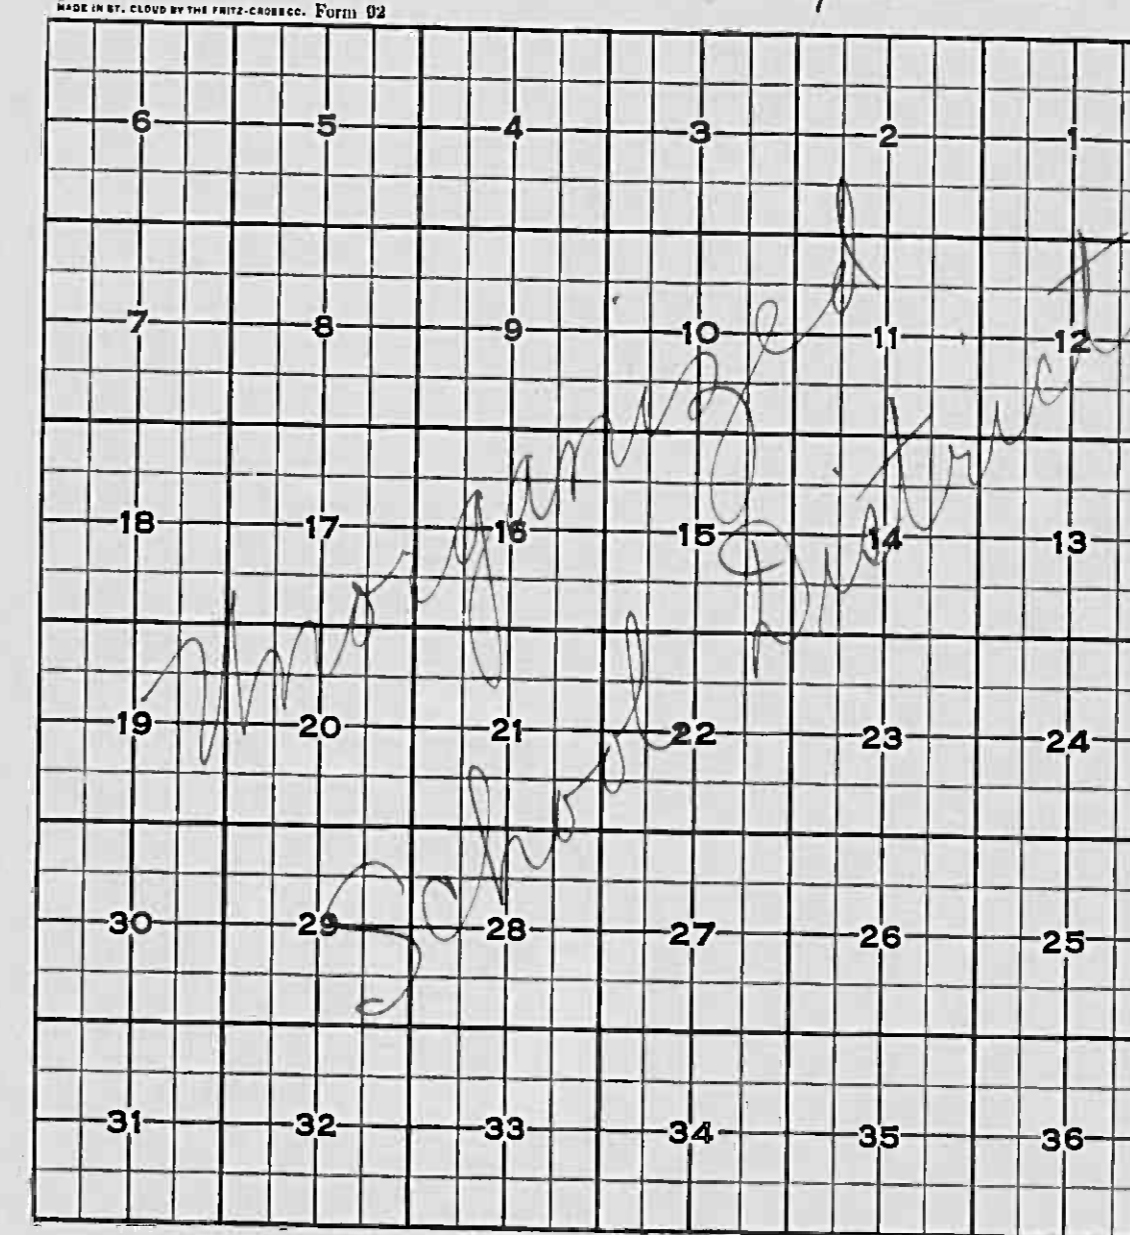 MADE IN ST. CLOUD BY THE FRITZ-CROSS CC. Form 92
6 5 4 3 2 1
7 8 9 10 11 12
18 17 16 15 14 13
19 20 21 22 23 24
30 29 28 27 26 25
31 32 33 34 35 36
Unorganized
District
School